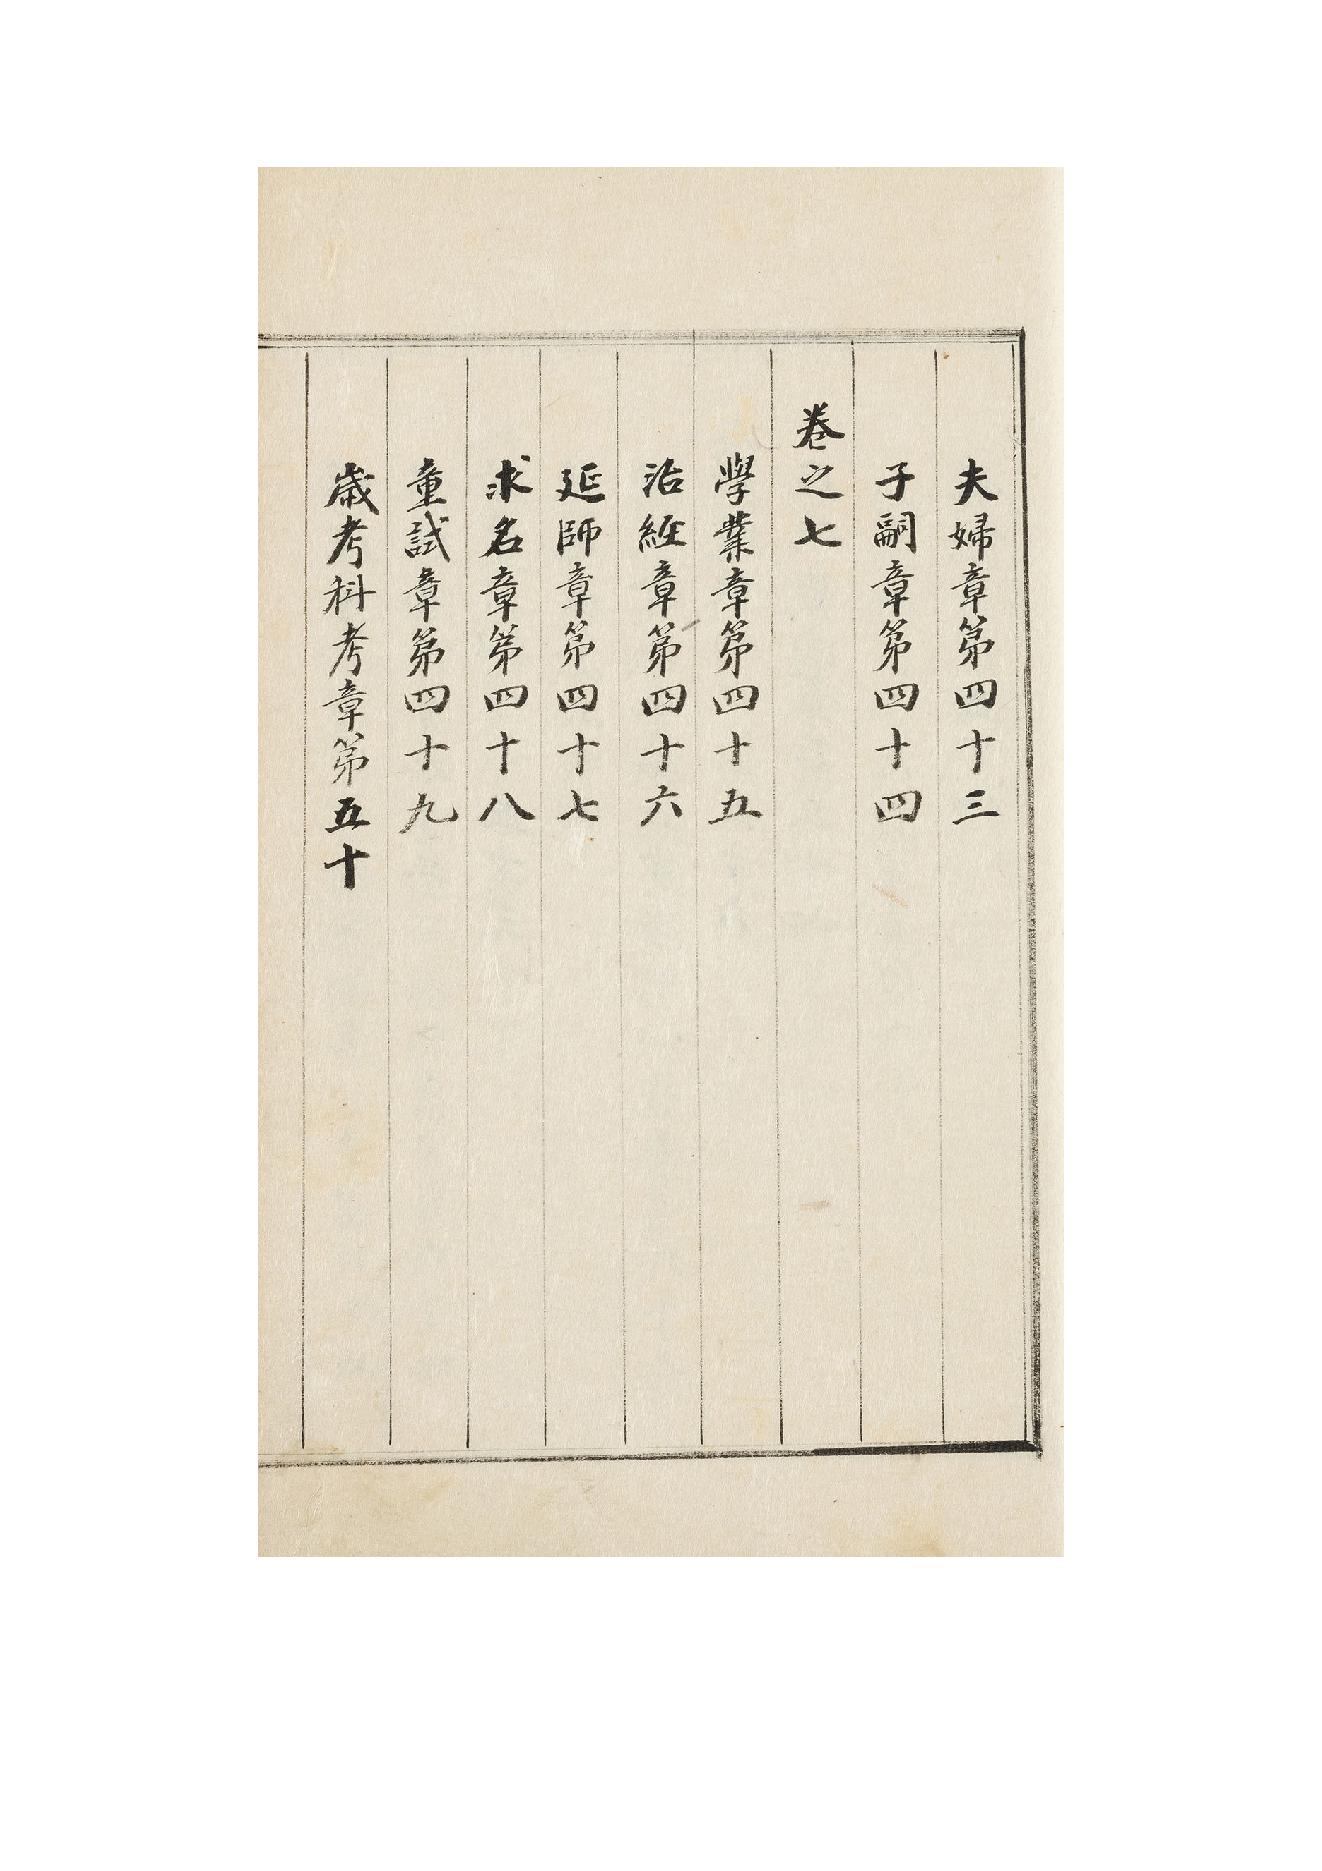 夫婦章第四十三
子嗣章第四十四
卷之七
學業章第四十五
治經章第四十六
延師章第四十七
求名章第四十八
童試章第四十九
歲考科考章第五十